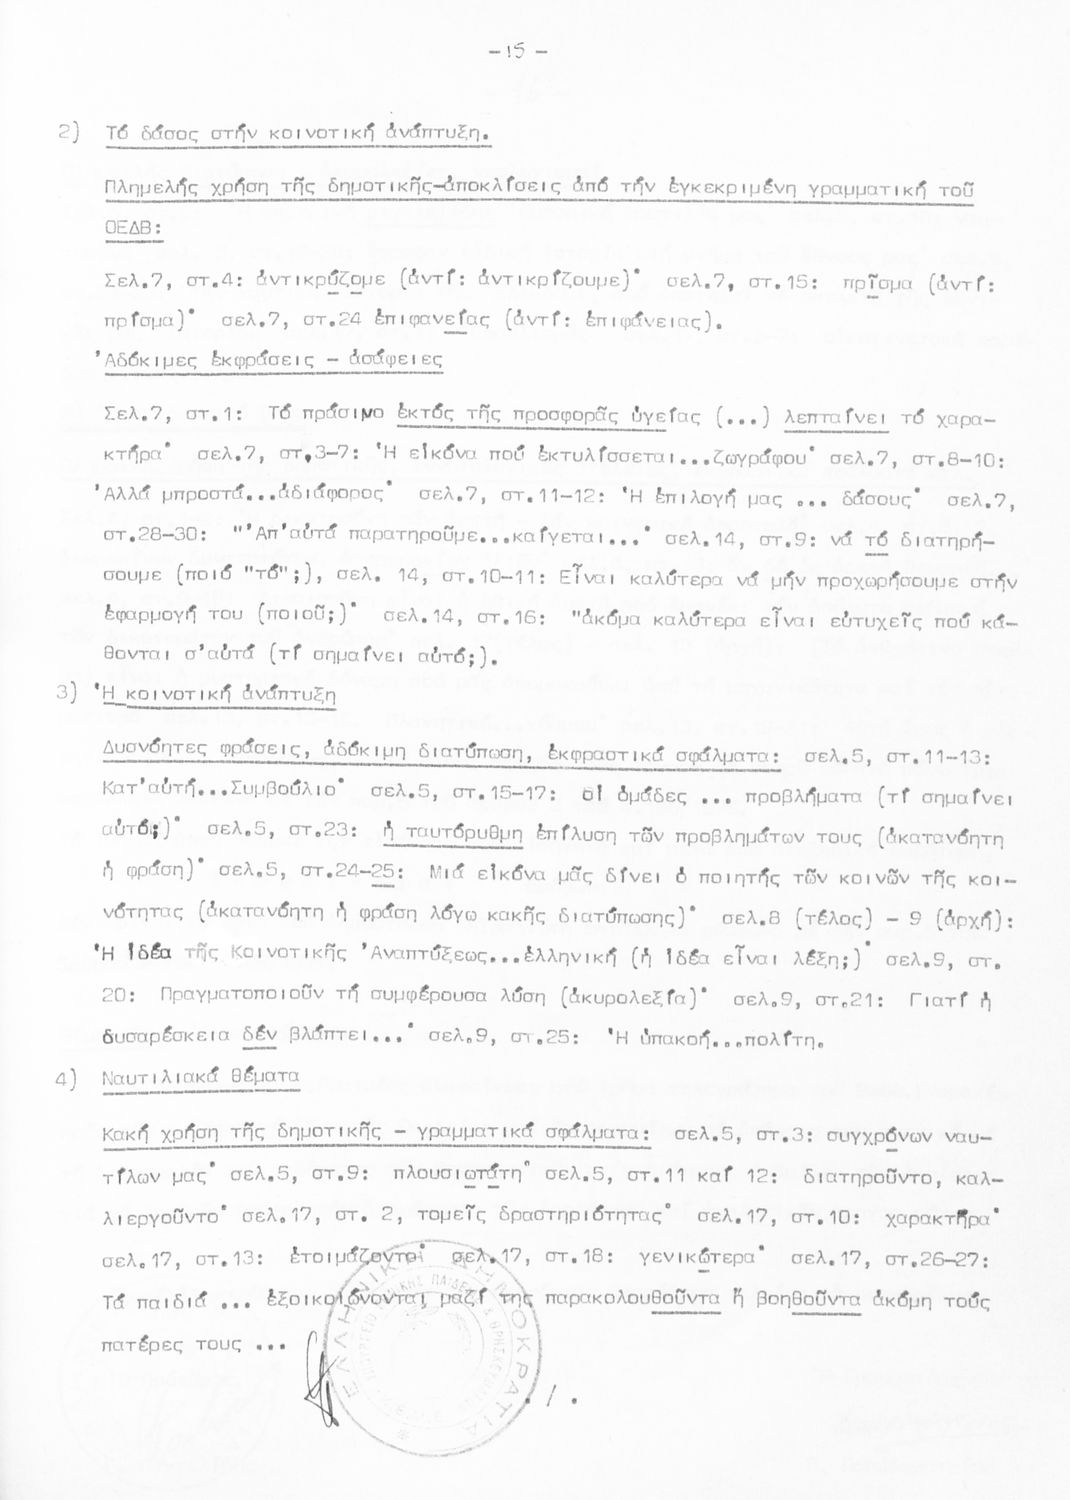 -15-
2) Τό δάσος στήν κοινοτική ἀνάπτυξη.
Πλημελής χρήση τῆς δημοτικῆς-ἀποκλίσεις ἀπό τήν ἐγκεκριμένη γραμματική τοῦ
ΟΕΔΒ:
Σελ.7, στ.4: ἀντικρύζομε (ἀντί: ἀντικρίζουμε)· σελ.7, στ.15: πρῖσμα (ἀντί:
πρίσμα)· σελ.7, στ.24 ἐπιφανείας (ἀντί: ἐπιφάνειας).
Ἀδόκιμες ἐκφράσεις - ἀσάφειες
Σελ.7, στ.1: Τό πράσινο ἐκτός τῆς προσφορᾶς ὑγείας (...) λεπταίνει τό χαρα-
κτήρα· σελ.7, στ.3-7: Ἡ εἰκόνα πού ἐκτυλίσσεται...ζωγράφου· σελ.7, στ.8-10:
Ἀλλά μπροστά...ἀδιάφορος· σελ.7, στ.11-12: Ἡ ἐπιλογή μας ... δάσους· σελ.7,
στ.28-30: "Ἀπ'αὐτά παρατηροῦμε...καίγεται...· σελ.14, στ.9: νά τό διατηρή-
σουμε (ποιό "τό";), σελ. 14, στ.10-11: Εἶναι καλύτερα νά μήν προχωρήσουμε στήν
ἐφαρμογή του (ποιοῦ;)· σελ.14, στ.16: "ἀκόμα καλύτερα εἶναι εὐτυχεῖς πού κά-
θονται σ'αὐτά (τί σημαίνει αὐτό;).
3) Ἡ κοινοτική ἀνάπτυξη
Δυσνόητες φράσεις, ἀδόκιμη διατύπωση, ἐκφραστικά σφάλματα: σελ.5, στ.11-13:
Κατ'αὐτή...Συμβούλιο· σελ.5, στ.15-17: οἱ ὁμάδες ... προβλήματα (τί σημαίνει
αὐτό;)· σελ.5, στ.23: ἡ ταυτόρυθμη ἐπίλυση τῶν προβλημάτων τους (ἀκατανόητη
ἡ φράση)· σελ.5, στ.24-25: Μιά εἰκόνα μᾶς δίνει ὁ ποιητής τῶν κοινῶν τῆς κοι-
νότητας (ἀκατανόητη ἡ φράση λόγω κακῆς διατύπωσης)· σελ.8 (τέλος) - 9 (ἀρχή):
Ἡ Ἰδέα τῆς Κοινοτικῆς Ἀναπτύξεως...ἑλληνική (ἡ ἰδέα εἶναι λέξη;)· σελ.9, στ.
20: Πραγματοποιοῦν τή συμφέρουσα λύση (ἀκυρολεξία)· σελ.9, στ.21: Γιατί ἡ
δυσαρέσκεια δέν βλάπτει...· σελ.9, στ.25: Ἡ ὑπακοή...πολίτη.
4) Ναυτιλιακά θέματα
Κακή χρήση τῆς δημοτικῆς - γραμματικά σφάλματα: σελ.5, στ.3: συγχρόνων ναυ-
τίλων μας· σελ.5, στ.9: πλουσιωτάτη· σελ.5, στ.11 καί 12: διατηροῦντο, καλ-
λιεργοῦντο· σελ.17, στ. 2, τομεῖς δραστηριότητας· σελ.17, στ.10: χαρακτῆρα·
σελ.17, στ.13: ἑτοιμάζοντο· σελ.17, στ.18: γενικώτερα· σελ.17, στ.26-27:
Τά παιδιά ... ἐξοικειώνονται μαζί της παρακολουθοῦντα ἤ βοηθοῦντα ἀκόμη τούς
πατέρες τους ...
ΕΛΛΗΝΙΚΗ ΔΗΜΟΚΡΑΤΙΑ
./.